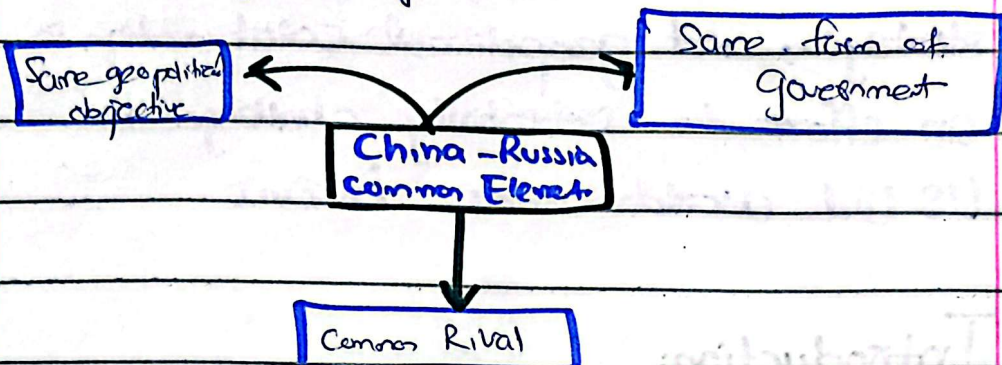 Same geopolitical
objective
Same form of
Government
China - Russia
common Element
Common Rival
Introduction: